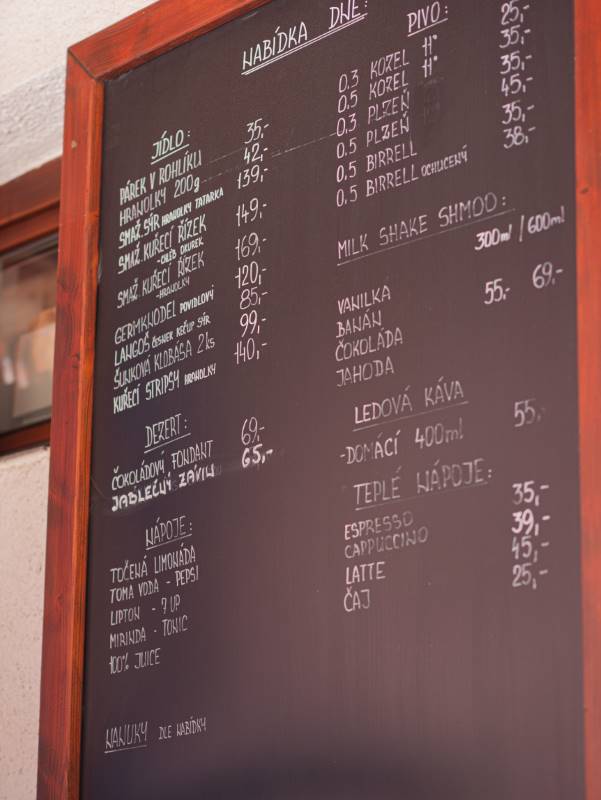 NABÍDKA DNE:
JÍDLO:
PÁREK V ROHLÍKU 35,-
HRANOLKY 200g 42,-
SMAŽ. SÝR HRANOLKY TATARKA 139,-
SMAŽ KUŘECÍ ŘÍZEK 149,-
-CHLÉB OKUREK
SMAŽ KUŘECÍ ŘÍZEK 169,-
-HRANOLKY
GERMKNODEL POVIDLOVÝ 120,-
LANGOŠ ČESNEK KEČUP SÝR 85,-
ŠUNKOVÁ KLOBÁSA 2ks 99,-
KUŘECÍ STRIPSY HRANOLKY 140,-
DEZERT:
ČOKOLÁDOVÝ FONDANT 69,-
JABLEČNÝ ZÁVIN 65,-
NÁPOJE:
TOČENÁ LIMONÁDA
TOMA VODA - PEPSI
LIPTON - 7 UP
MIRINDA - TONIC
100% JUICE
NANUKY DLE NABÍDKY
PIVO:
0,3 KOZEL 11° 25,-
0,5 KOZEL 11° 35,-
0,3 PLZEŇ 35,-
0,5 PLZEŇ 45,-
0,5 BIRRELL 35,-
0,5 BIRRELL OCHUCENÝ 38,-
MILK SHAKE SHMOO:
300ml / 600ml
VANILKA 55,- 69,-
BANÁN
ČOKOLÁDA
JAHODA
LEDOVÁ KÁVA
-DOMÁCÍ 400ml 55,-
TEPLÉ NÁPOJE:
ESPRESSO 35,-
CAPPUCCINO 39,-
LATTE 45,-
ČAJ 25,-